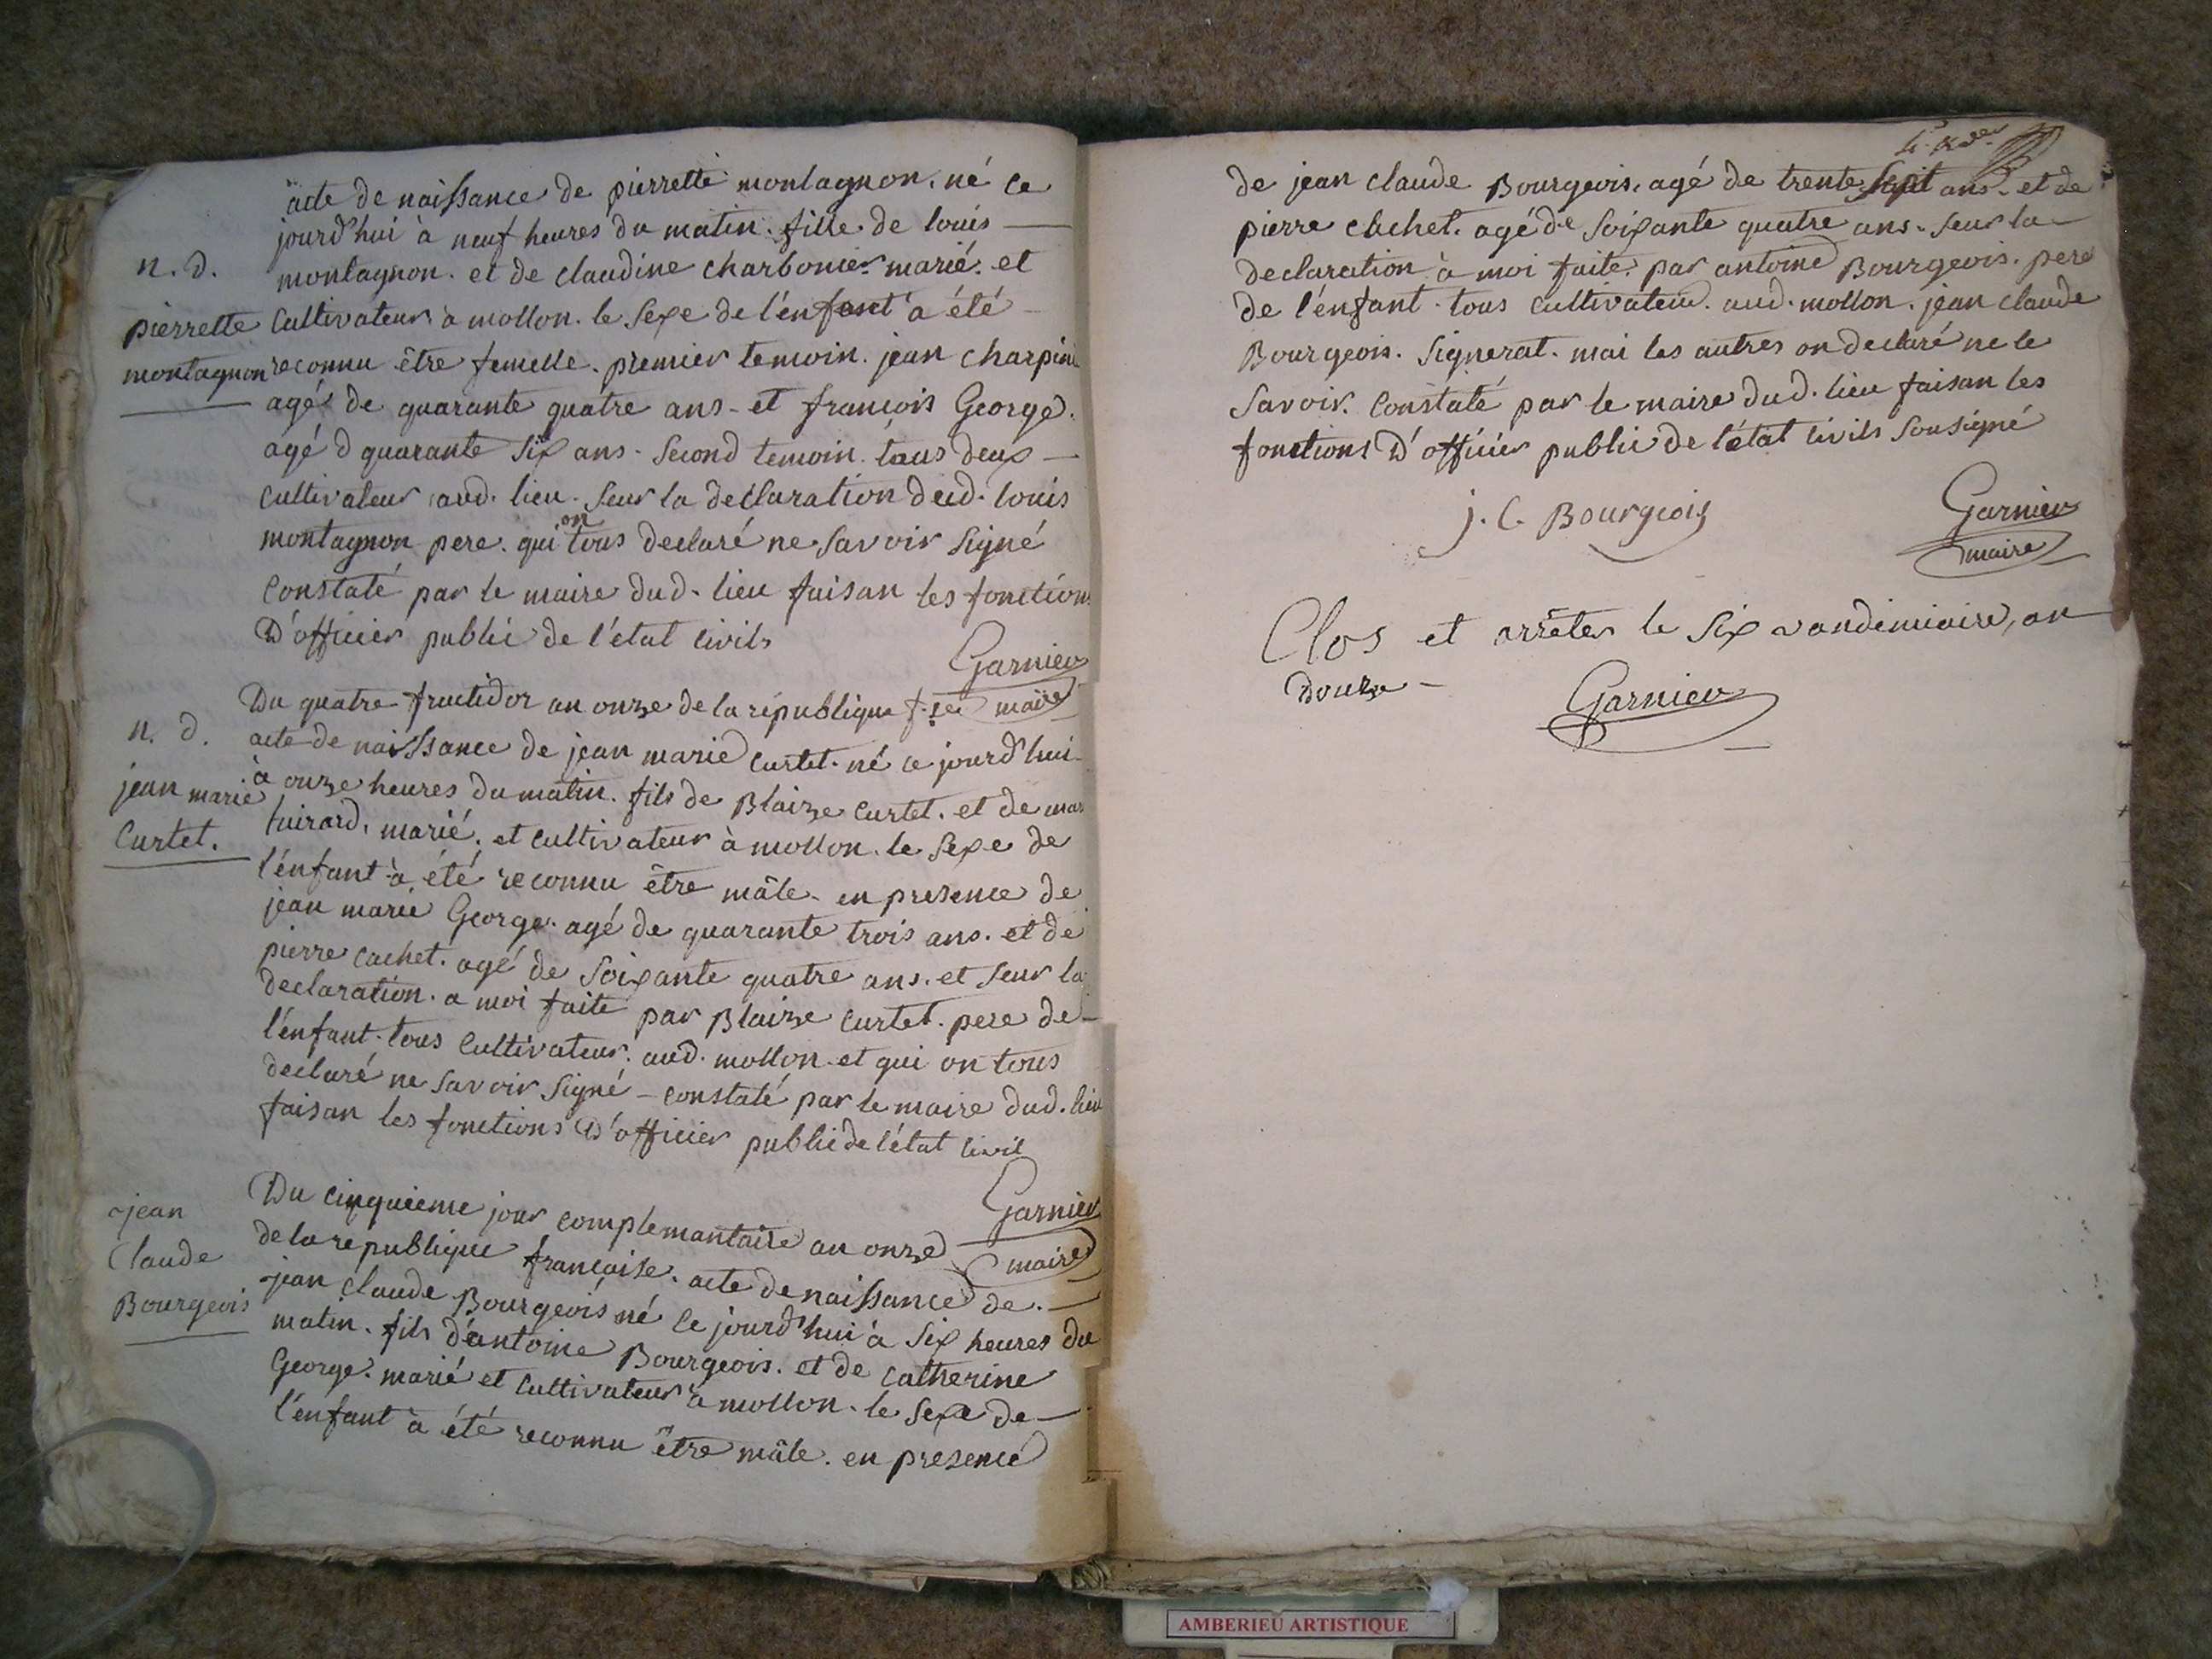 acte de naissance de pierrette montagnon. né ce
jourd'hui à neuf heures du matin. fille de louis
n. d.
montagnon. et de claudine charbonier. marié. et
pierrette
cultivateur à mollon. le sexe de l'enfant à été
montagnon
reconnu être femelle. premier temoin. jean charpine
agé de quarante quatre ans - et françois George.
agé d quarante six ans - second temoin. tous deux
cultivateur aud. lieu. seur la declaration dud. louis
montagnon pere. qui on tous declaré ne savoir signé
constaté par le maire dud. lieu faisan les fonctions
D'officier public de l'etat civils
Garnier
maire
Du quatre fructidor an onze de la république f.se
n. d.
acte de naissance de jean marie curtet. né ce jourd'hui
jean marie
à onze heures du matin. fils de Blaize curtet. et de
curtet.
marié. et cultivateur à mollon. le sexe de
l'enfant à été reconnu être mâle. en presence de
jean marie George. agé de quarante trois ans. et de
pierre cachet. agé de soixante quatre ans. et seur la
declaration. a moi faite par Blaize curtet. pere de
l'enfant. tous cultivateur. aud. mollon et qui on tous
declaré ne savoir signé - constaté par le maire dud. lieu
faisan les fonctions D'officier public de l'état civil
Garnier
maire
jean
claude
Bourgeois
Du cinquieme jour complemantaire an onze
de la republique française. acte de naissance de.
jean claude Bourgeois né ce jourd'hui à six heures du
matin. fils d'antoine Bourgeois. et de catherine
George. marié et cultivateur à mollon. le sexe de
l'enfant à été reconnu être mâle. en presence
de jean claude Bourgeois. agé de trente sept ans. et de
pierre cachet. agé de soixante quatre ans. seur la
declaration à moi faite. par antoine Bourgeois. pere
de l'enfant. tous cultivateur. aud. mollon. jean claude
Bourgeois. signerat. mai les autres on declaré ne le
savoir. constaté par le maire dud. lieu faisan les
fonctions D'officier public de l'état civils sousigné
j. C. Bourgeois
Garnier
maire
Clos et arrêter le six vandémiaire, an
Douze -
Garnier
AMBERIEU ARTISTIQUE